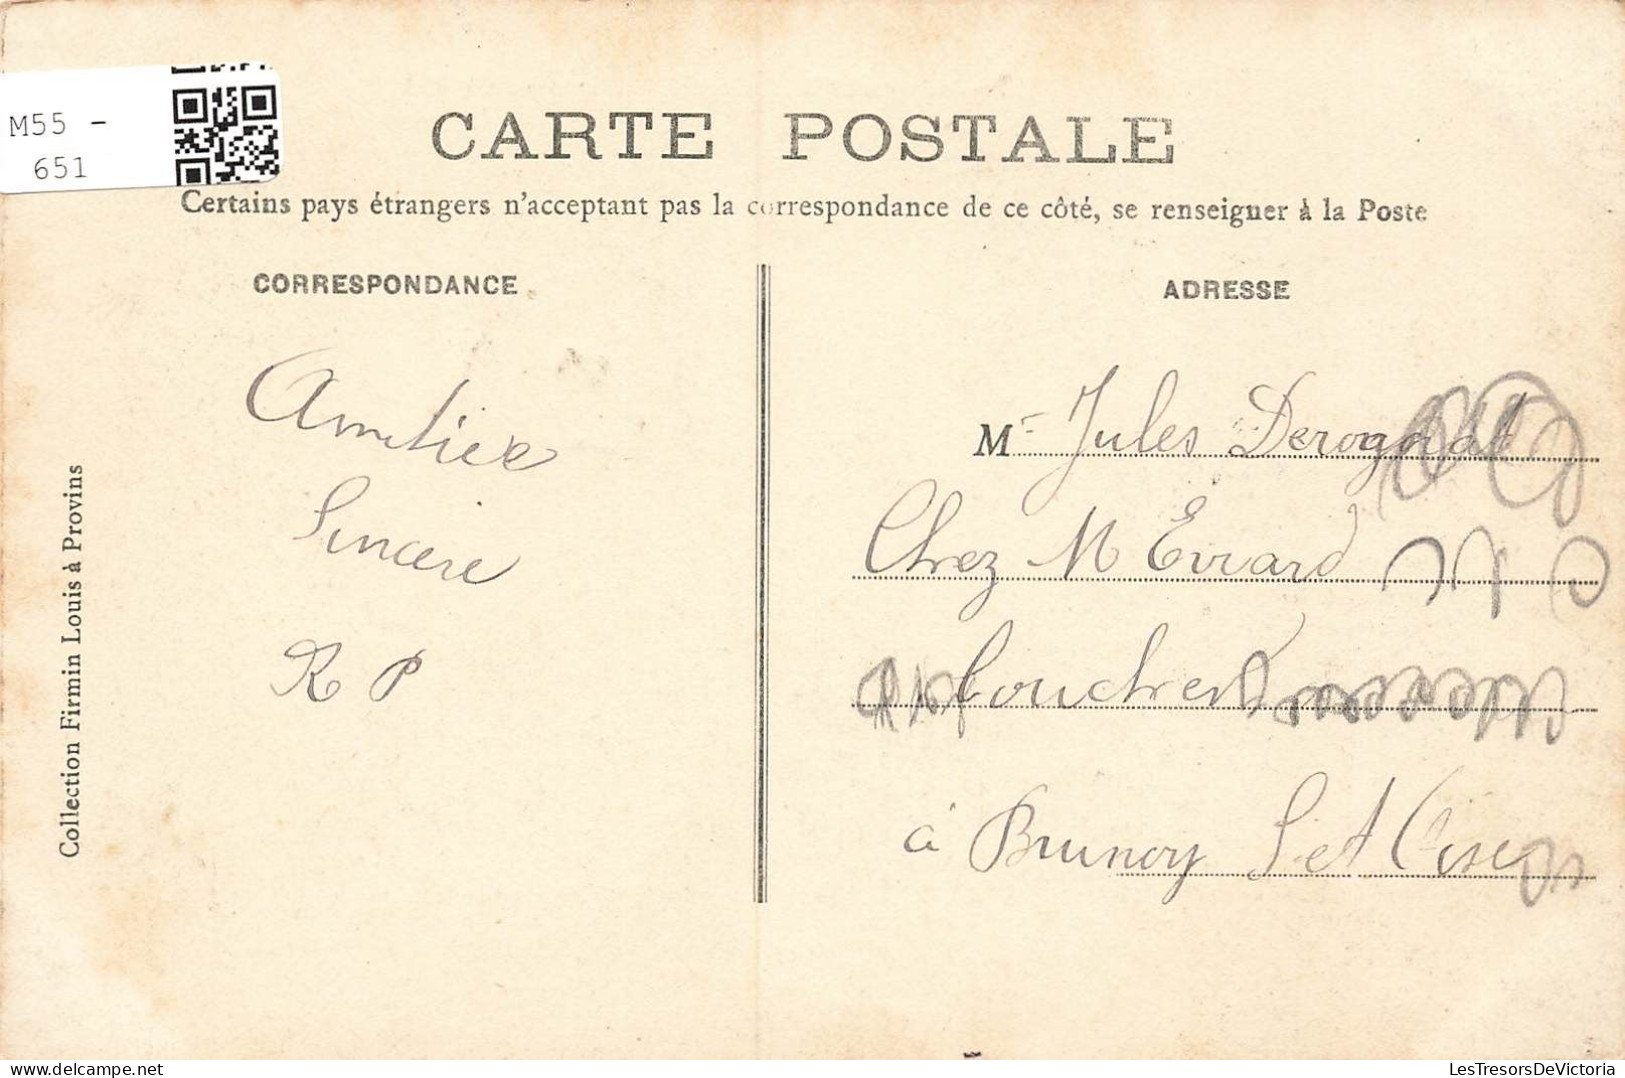 M55 -
651
CARTE POSTALE
Certains pays étrangers n'acceptant pas la correspondance de ce côté, se renseigner à la Poste
CORRESPONDANCE
ADRESSE
Collection Firmin Louis à Provins
Amitiée
Sincere
R P
Mr Jules Derognat
Chez M Evrard
Boucher
à Brunoy S et Oise
LesTresorsDeVictoria